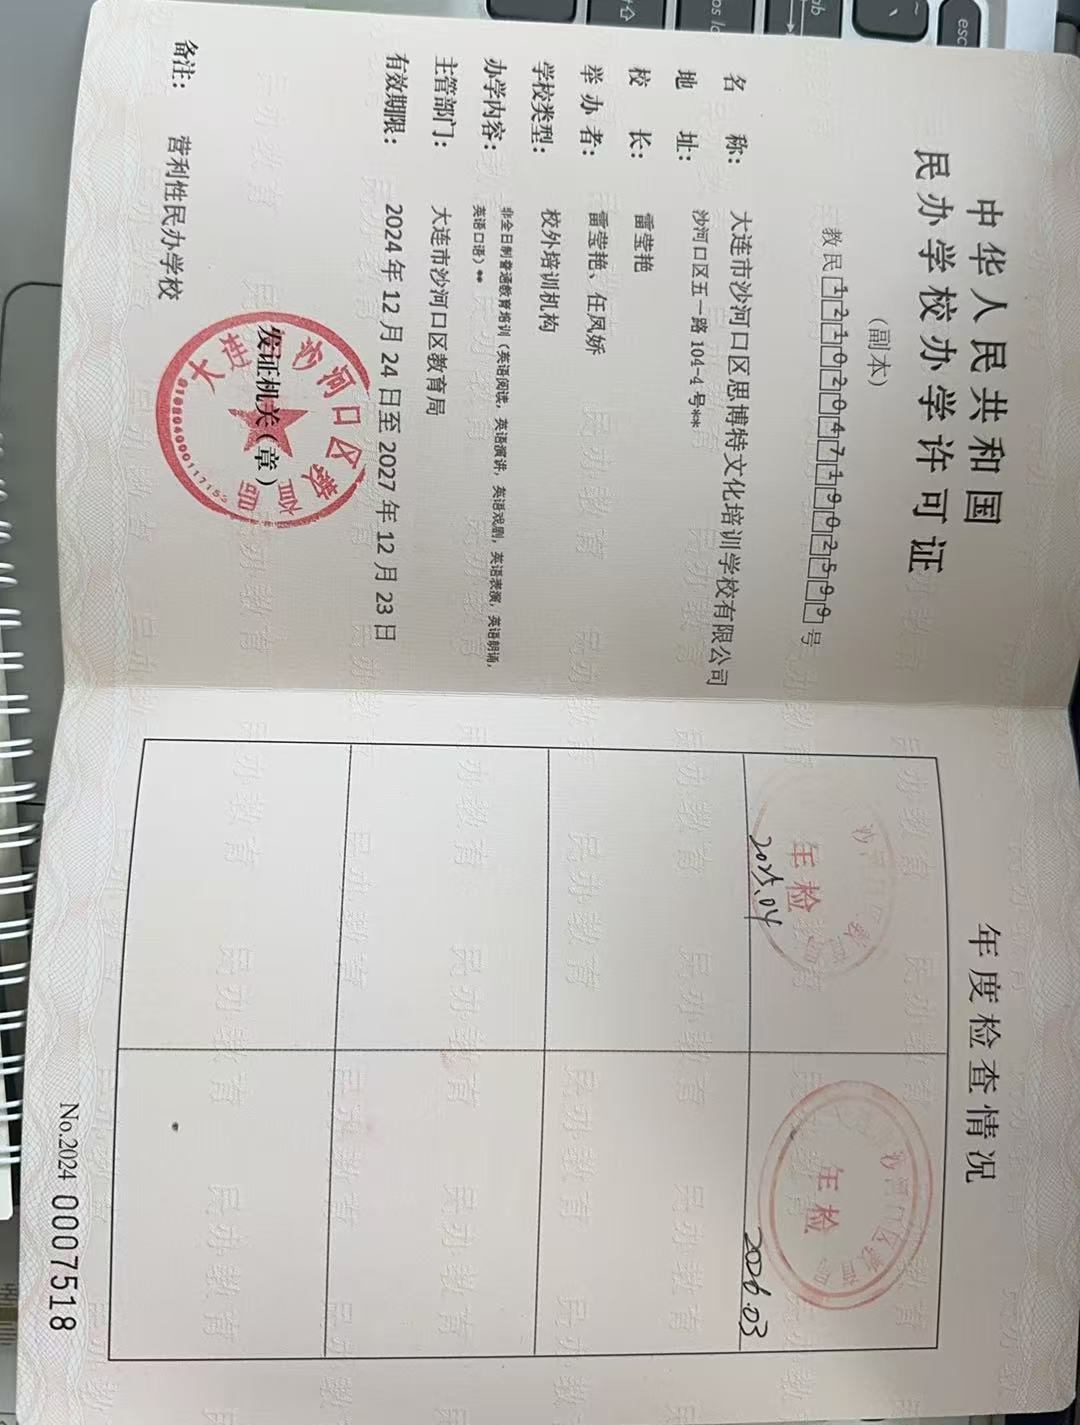 中华人民共和国
民办学校办学许可证
（副本）
教民121020471902599号
名 称： 大连市沙河口区思博特文化培训学校有限公司
地 址： 沙河口区五一路104-4号**
校 长： 雷莹艳
举 办 者： 雷莹艳、任凤娇
学校类型： 校外培训机构
办学内容： 非全日制普通教育培训（英语阅读，英语演讲，英语戏剧，英语表演，英语朗诵，
英语口语）**
主管部门： 大连市沙河口区教育局
有效期限： 2024年12月24日至2027年12月23日
发证机关（章）
备注： 营利性民办学校
年度检查情况
年检
2025.04
沙河口区教育局
年检
2026.03
No.2024 0007518
esc
tab